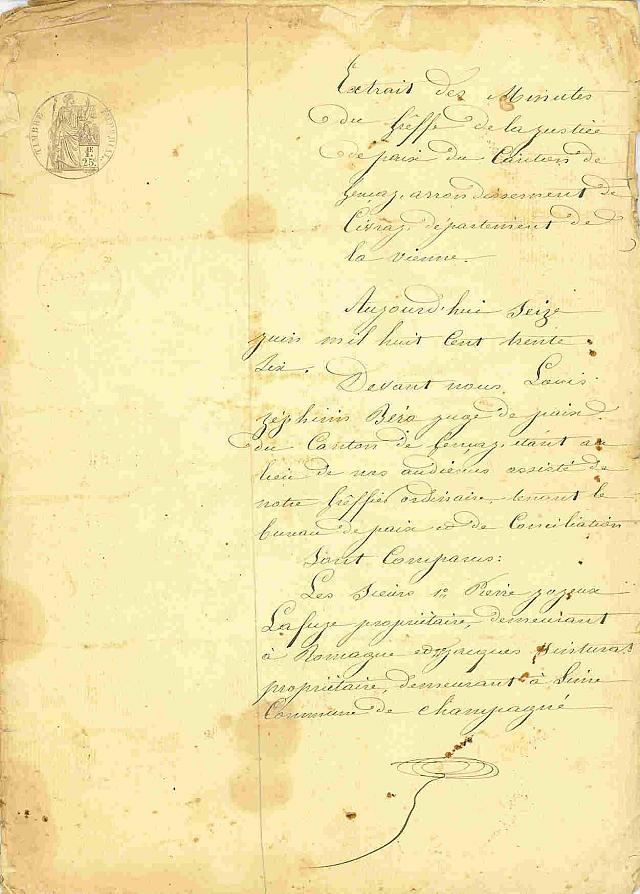 TIMBRE
1F
25c
Extrait des Minutes
du Greffe de la justice
de paix du Canton de
Gençay, arrondissement de
Civray, département de
la vienne.
Aujourd'hui Seize
juin mil huit Cent trente
Six. Devant nous, Louis
Béra juge de paix
du Canton de Gençay, étant au
lieu de nos audiences assisté de
notre Greffier ordinaire, tenant le
bureau de paix et de Conciliation
Sont Comparus:
Les Sieurs 1º Pierre joyeux
Lafuge propriétaire, demeurant
à Romagne
propriétaire, demeurant à
Commune de Champagné